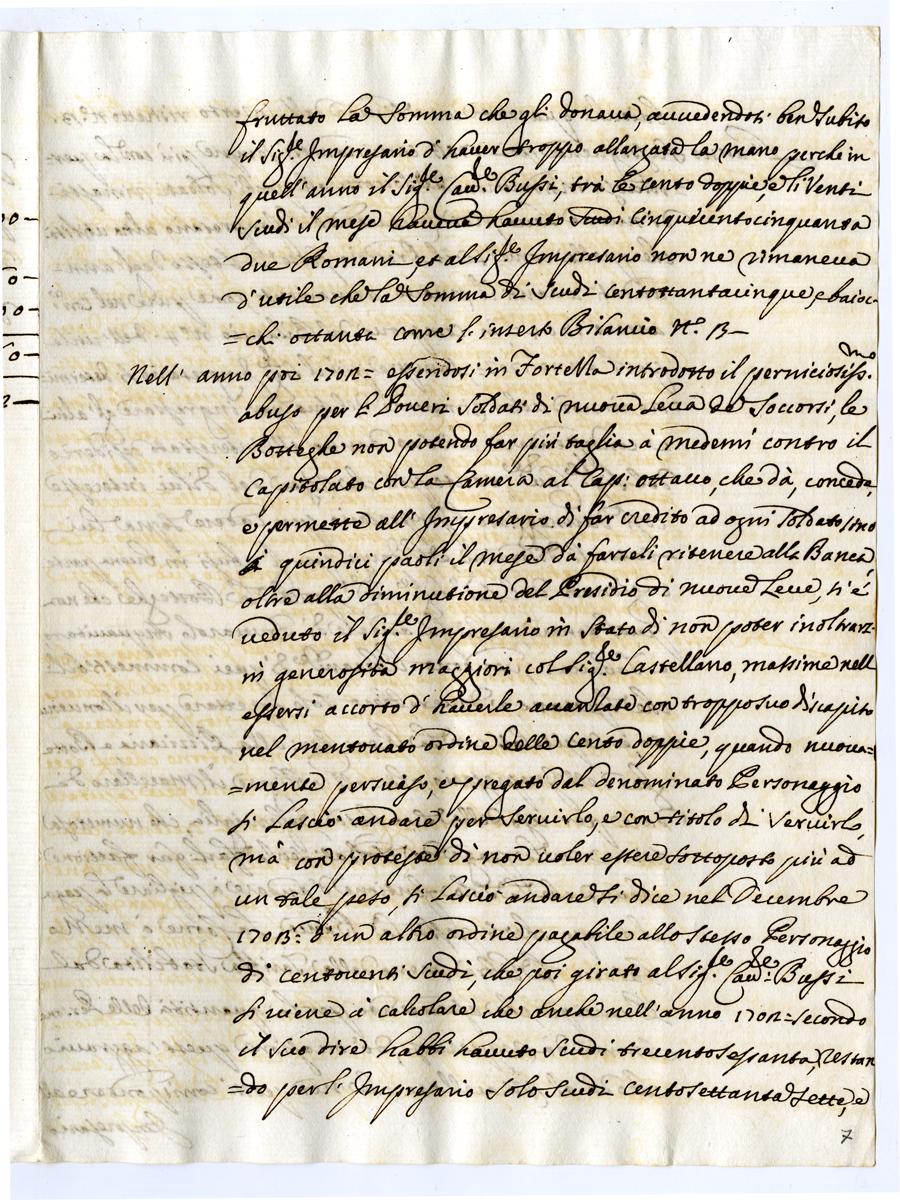 fruttato la Somma che gli donava, avvedendosi ben subito
il Sig.re Impresario d'haver troppo allargata la mano perche in
quell'anno il Sig.re Cav.re Bussi, trà le cento doppie, e li Venti
scudi il mese havevà havuto scudi cinquecentocinquanta
due Romani, et al Sig.re Impresario non ne rimaneva
d'utile che la Somma di scudi centottantacinque, e baioc-
=chi ottanta come p. l'inserto Bilancio N.o B-
Nell' anno poi 1702= essendosi in Fortezza introdotto il perniciosiss.mo
abuso per li Poveri Soldati di nuova Leva de Soccorsi, le
Botteghe non potendo far più taglia à medemi contro il
Capitolato con la Camera al Cap: ottavo, che dà, conceda,
e permette all' Impresario di far credito ad ogni soldato sino
à quindici paoli il mese da farseli ritenere alla Banca
oltre alla diminutione del Presidio di nuove Leve, si è
veduto il Sig.re Impresario in stato di non poter inoltrarsi
in generosità maggiori col Sig.re Castellano, massime nell
essersi accorto d'haverle avanzate con troppo suo discapito
nel mentovato ordine delle cento doppie, quando nuova=
=mente persuaso, e pregato dal denominato Personaggio
si lasciò andare per servirlo, e con titolo di servirlo,
mà con proteste di non voler essere sottoposto più ad
un tale peso, si lasciò andare si dice nel Decembre
1702: d'un altro ordine pagabile allo stesso Personaggio
di centoventi scudi, che poi girato al Sig.re Cav.re Bussi
si viene à calcolare che anche nell'anno 1702= secondo
il suo dire habbi havuto scudi trecentosessanta, restan
=do per l' Impresario solo scudi centosettanta sette, e
7